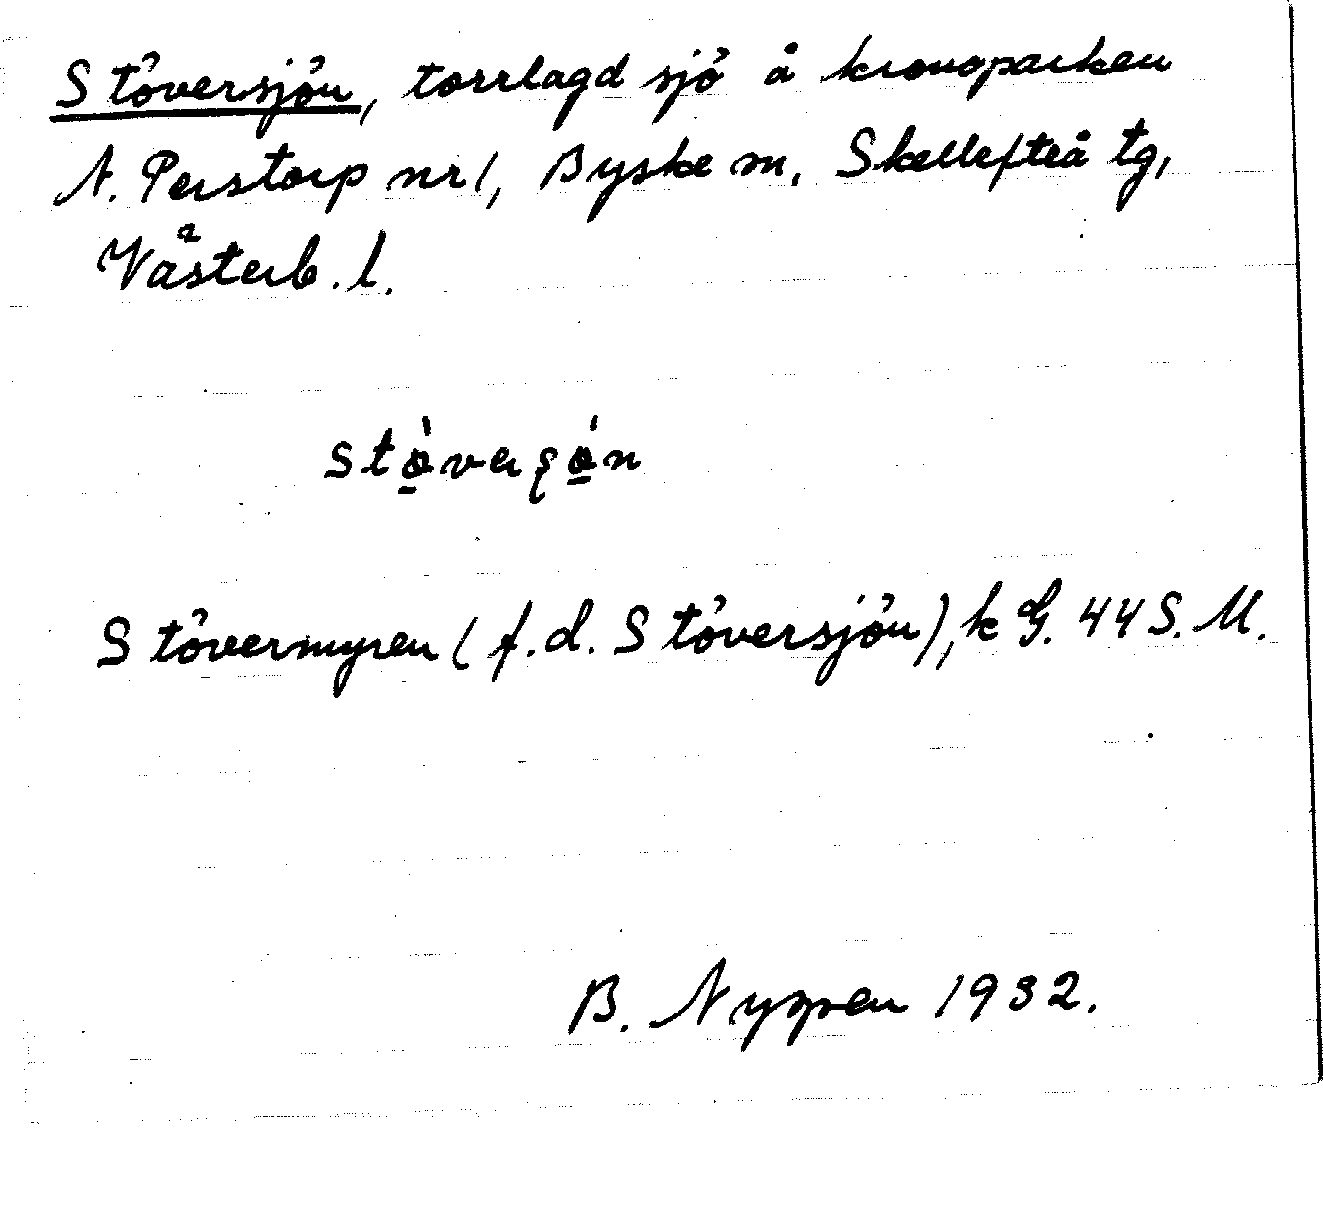 Stöversjön, torrlagd sjö å kronoparken
N. Perstorp nr 1, Byske sn, Skellefteå tg,
Västerb. l.
Stövermyren (f.d. Stöversjön), k G. 44 S. M.
B. Nygren 1932.